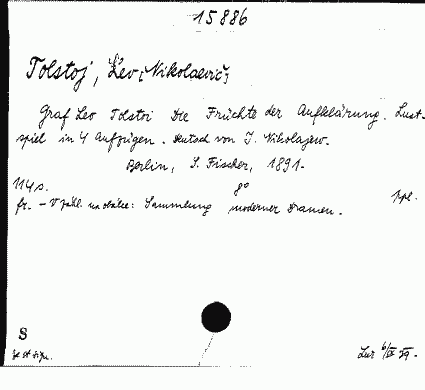 15886
Tolstoj, Lev [Nikolaevič]
Graf Leo Tolstoi Die Früchte der Aufklärung. Lust-
spiel in 4 Aufzügen. Deutsch von J. Nikolajew.
Berlin, S. Fischer, 1891.
114 s. 8°
fr. - V záhl. na obálce: Sammlung moderner Dramen.
S